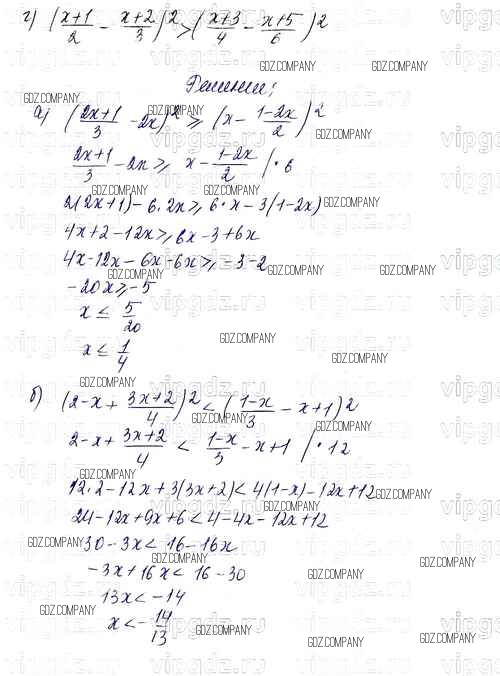 г) (x+1/2 - x+2/3)² > (x+3/4 - x+5/6)²
GDZ.COMPANY GDZ.COMPANY
Решение:
GDZ.COMPANY GDZ.COMPANY
а) (2x+1/3 - 2x)² ≥ (x - 1-2x/2)²
GDZ.COMPANY GDZ.COMPANY
2x+1/3 - 2x ≥ x - 1-2x/2 | · 6
GDZ.COMPANY GDZ.COMPANY
2(2x+1) - 6·2x ≥ 6·x - 3(1-2x) GDZ.COMPANY
4x+2-12x ≥ 6x-3+6x
4x-12x-6x-6x ≥ -3-2
GDZ.COMPANY GDZ.COMPANY GDZ.COMPANY
-20x ≥ -5
x ≤ 5/20
GDZ.COMPANY
x ≤ 1/4
GDZ.COMPANY
GDZ.COMPANY
б) (2-x + 3x+2/4)² < (1-x/3 - x+1)²
GDZ.COMPANY GDZ.COMPANY
2-x + 3x+2/4 < 1-x/3 - x+1 | · 12
GDZ.COMPANY
12·2-12x+3(3x+2) < 4(1-x)-12x+12 GDZ.COMPANY
24-12x+9x+6 < 4-4x-12x+12
GDZ.COMPANY 30-3x < 16-16x
GDZ.COMPANY GDZ.COMPANY
-3x+16x < 16-30 GDZ.COMPANY
13x < -14
GDZ.COMPANY
x < -14/13
GDZ.COMPANY GDZ.COMPANY GDZ.COMPANY